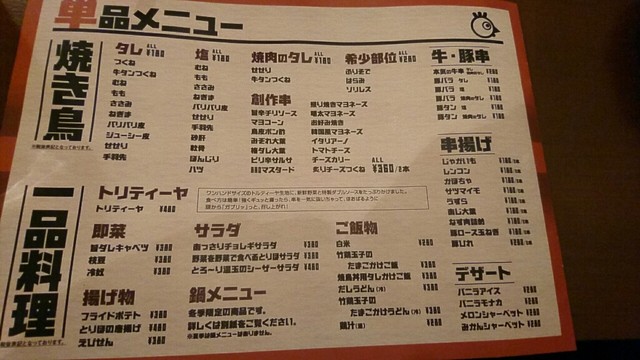 単品メニュー
焼き鳥
タレ ALL ¥180
つくね
牛タンつくね
むね
もも
ささみ
ねぎま
パリパリ皮
ジューシー皮
せせり
手羽先
塩 ALL ¥180
むね
もも
ささみ
ねぎま
パリパリ皮
せせり
手羽先
砂肝
軟骨
ぼんじり
ハツ
焼肉のタレ ALL ¥180
せせり
牛タンつくね
希少部位 ALL ¥280
ふりそで
はらみ
ソリレス
創作串
旨辛チリソース
マヨコーン
鳥皮ポン酢
みぞれ大葉
梅ダレ大葉
ピリ辛サルサ
マスタード
照り焼きマヨネーズ
明太マヨネーズ
お好み焼き
韓国風マヨネーズ
イタリアーノ
トマトチーズ
チーズカリー
炙りチーズつくね
ALL ¥360/2本
牛・豚串
豚バラ
豚バラ
豚タン
豚タン
串揚げ
じゃがいも
レンコン
かぼちゃ
サツマイモ
うずら
あじ大葉
ねぎ肉詰め
豚ロース玉ねぎ
豚ヒレ
一品料理
トリティーヤ
トルティーヤ ¥480
ワンハンドサイズのトルティーヤ生地に、新鮮野菜と特製ダブルソースをたっぷりかけました。
即菜
旨ダレキャベツ ¥380
枝豆 ¥380
冷奴 ¥380
揚げ物
フライドポテト
とりほの唐揚げ
えびせん ¥380
サラダ
あっさりチョレギサラダ ¥380
野菜を野菜で食べるとりほサラダ ¥380
とろーり温玉のシーザーサラダ
鍋メニュー
冬季限定の商品です。
詳しくは別紙をご覧ください。
※夏季は鍋メニューはありません。
ご飯物
白米
竹鶏玉子の
たまごかけご飯 ¥380
焼鳥丼用タレかけご飯
だしうどん(冷)
竹鶏玉子の
たまごかけうどん(冷)
鶏汁(椀)
デザート
バニラアイス ¥280
バニラモナカ ¥280
メロンシャーベット ¥280
みかんシャーベット ¥280